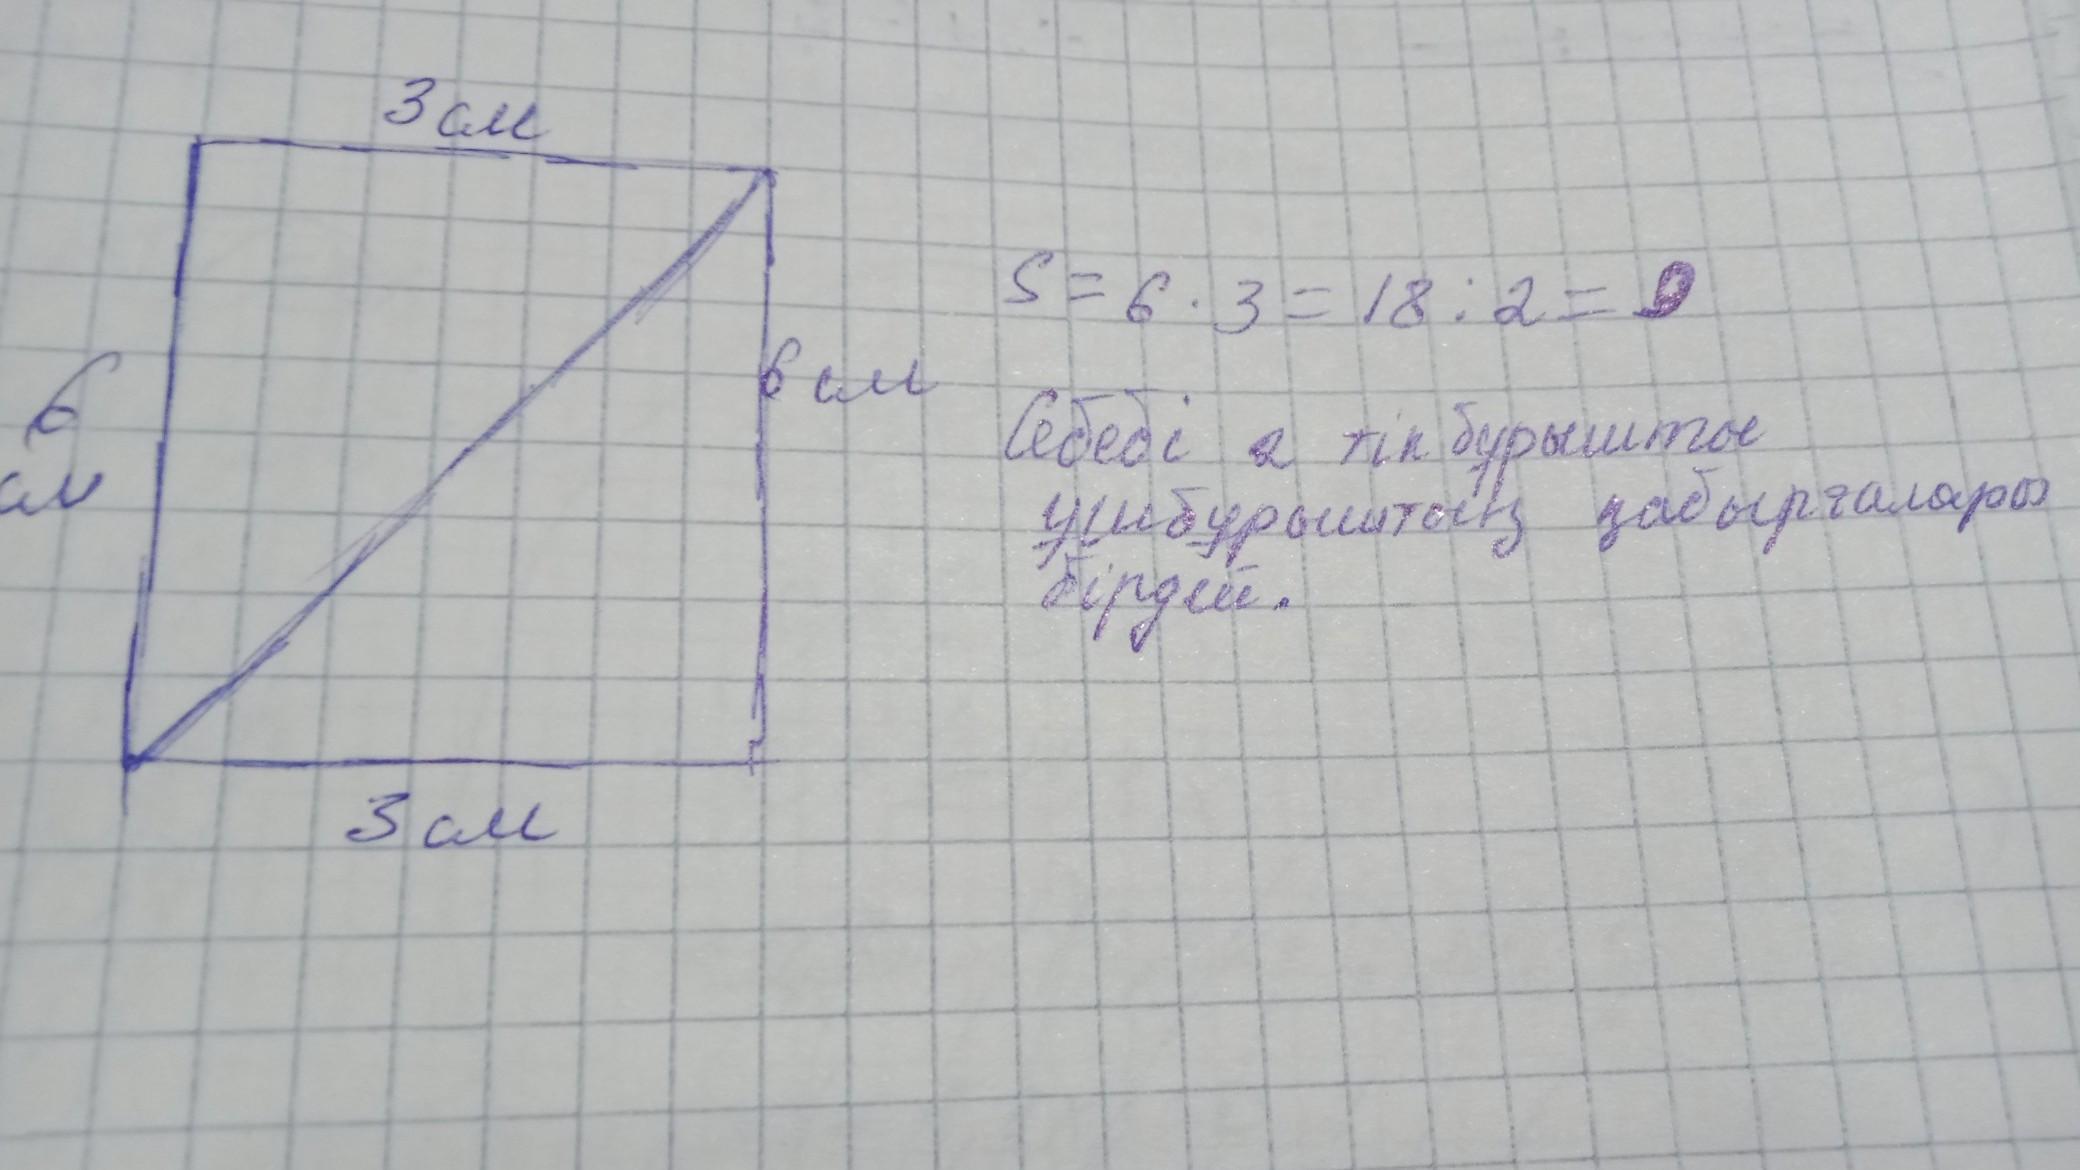 3 см
6
см
6 см
3 см
S = 6 · 3 = 18 : 2 = 9
Себебі 2 тік бұрышты
үшбұрыштың қабырғалары
бірдей.